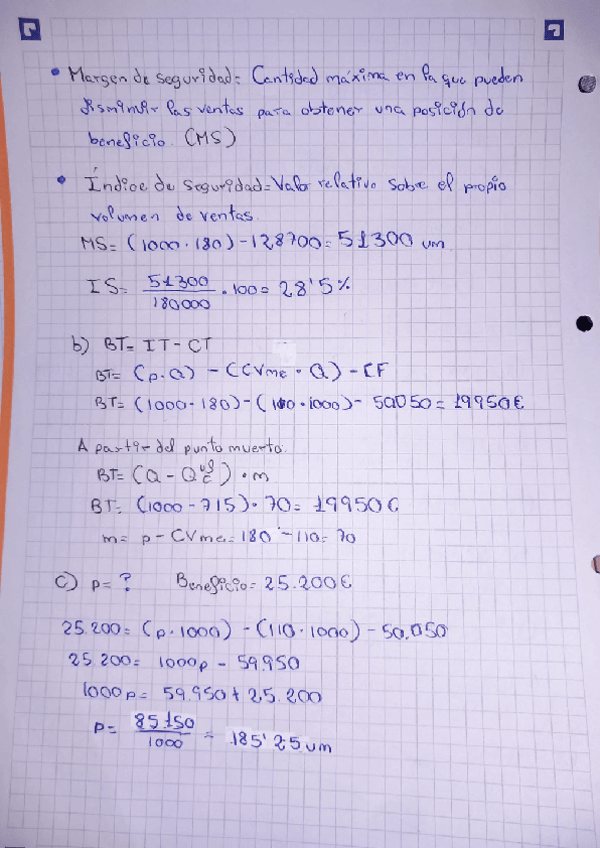 • Margen de seguridad= Cantidad máxima en la que pueden
disminuir las ventas para obtener una posición de
beneficio. (MS)
• Índice de seguridad= Valor relativo sobre el propio
volumen de ventas.
MS= (1000 · 180) - 128700= 51300 um
IS= 51300/180000 · 100= 28'5%
b) BT= IT - CT
BT= (p·Q) - (CVme · Q) - CF
BT= (1000·180) - (110·1000) - 50050= 19950€
A partir del punto muerto:
BT= (Q - Qc^ug) · m
BT= (1000 - 715) · 70= 19950€
m= p - CVme= 180 - 110= 70
c) p= ? Beneficio= 25.200€
25.200= (p·1000) - (110·1000) - 50.050
25.200= 1000p - 59.950
1000p= 59.950 + 25.200
p= 85150/1000 = 185'25 um